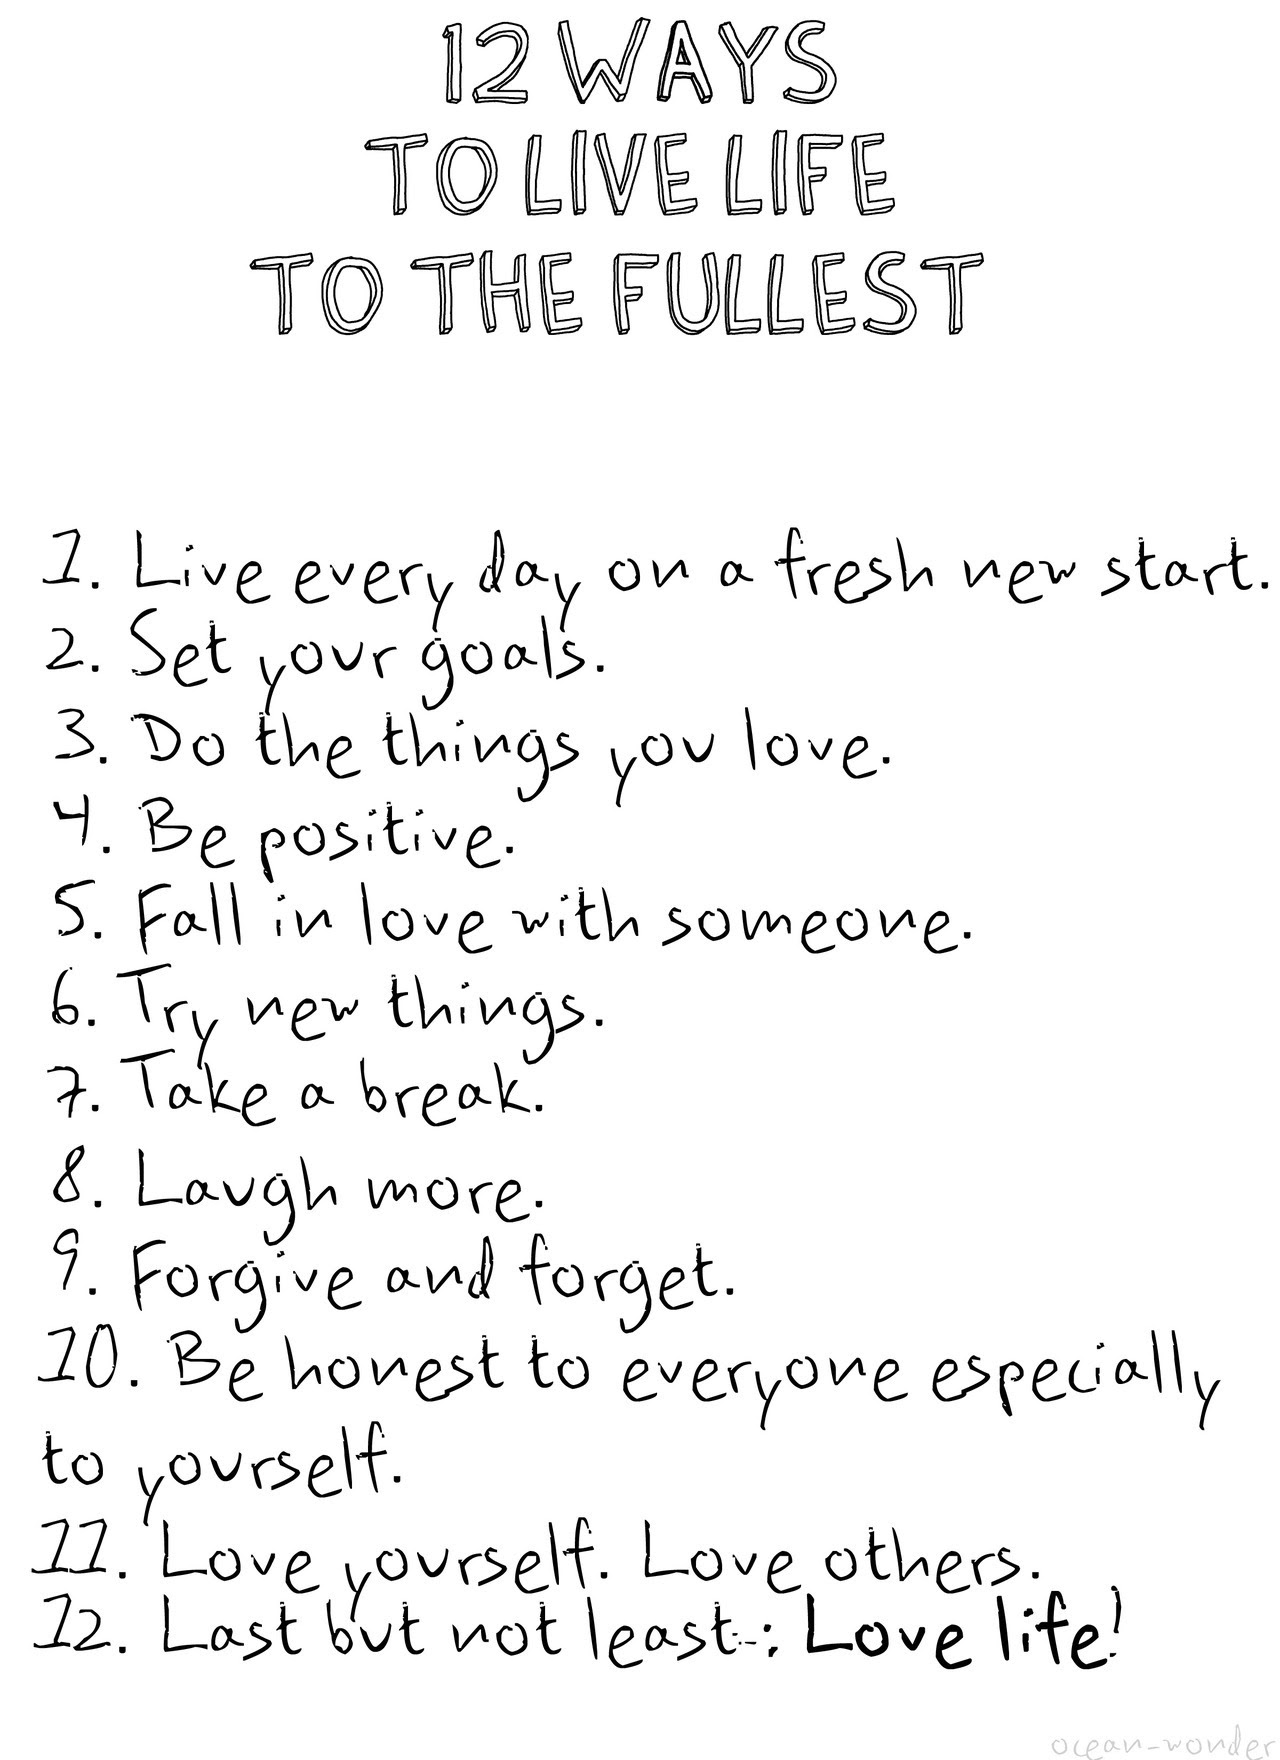 12 WAYS
TO LIVE LIFE
TO THE FULLEST
1. Live every day on a fresh new start.
2. Set your goals.
3. Do the things you love.
4. Be positive.
5. Fall in love with someone.
6. Try new things.
7. Take a break.
8. Laugh more.
9. Forgive and forget.
10. Be honest to everyone especially
to yourself.
11. Love yourself. Love others.
12. Last but not least-: Love life!
ocean-wonder